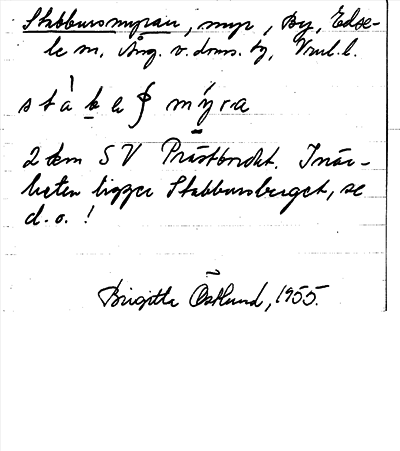 Stabbursmyran, myr, By, Edse-
le sn, Ång. v. doms. tg, Vnl. l.
myra
2 km SV Prästbordet. I när-
heten ligger Stabbursberget, se
d. o. !
Birgitta Östlund, 1955.